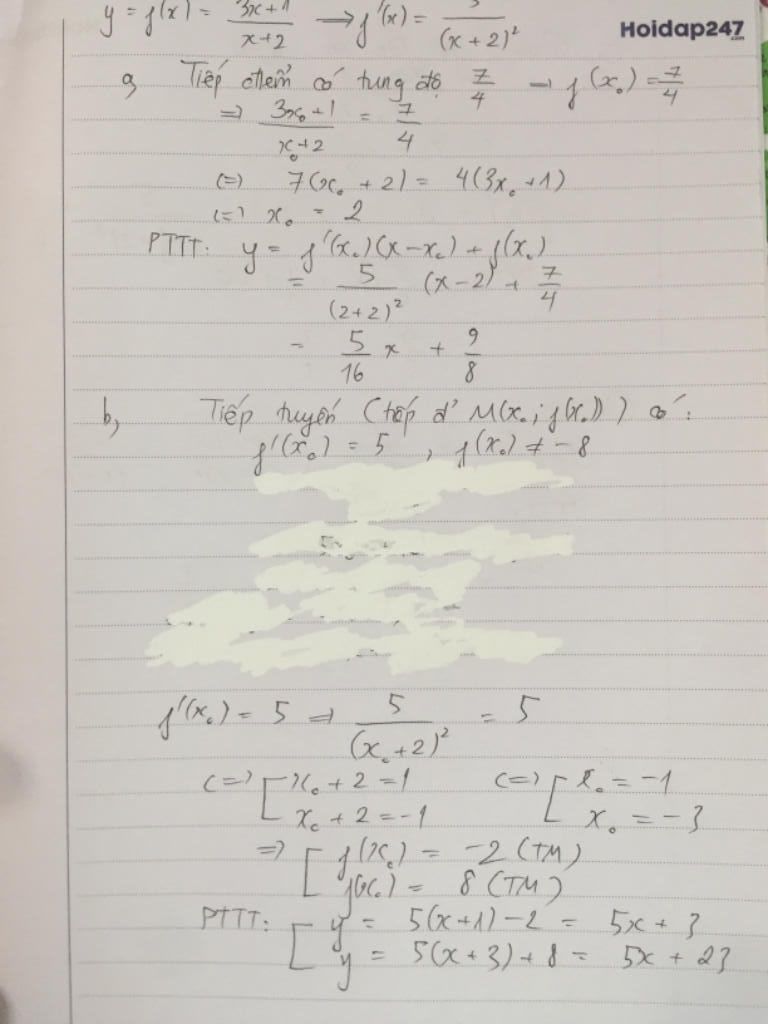 y = f(x) = \frac{3x+1}{x+2} → f'(x) = \frac{5}{(x+2)^2}
Hoidap247.com
a, Tiếp điểm có tung độ \frac{7}{4} → f(x_0) = \frac{7}{4}
=> \frac{3x_0+1}{x_0+2} = \frac{7}{4}
(=) 7(x_0+2) = 4(3x_0+1)
(=) x_0 = 2
PTTT: y = f'(x_0)(x-x_0) + f(x_0)
= \frac{5}{(2+2)^2} (x-2) + \frac{7}{4}
= \frac{5}{16} x + \frac{9}{8}
b, Tiếp tuyến (tiếp đ' M(x_0; f(x_0))) có:
f'(x_0) = 5, f(x_0) ≠ -8
f'(x_0) = 5 => \frac{5}{(x_0+2)^2} = 5
(=) [ x_0 + 2 = 1 (=) [ x_0 = -1
x_0 + 2 = -1 x_0 = -3
=> [ f(x_0) = -2 (TM)
f(x_0) = 8 (TM)
PTTT: [ y = 5(x+1) - 2 = 5x + 3
y = 5(x+3) + 8 = 5x + 23